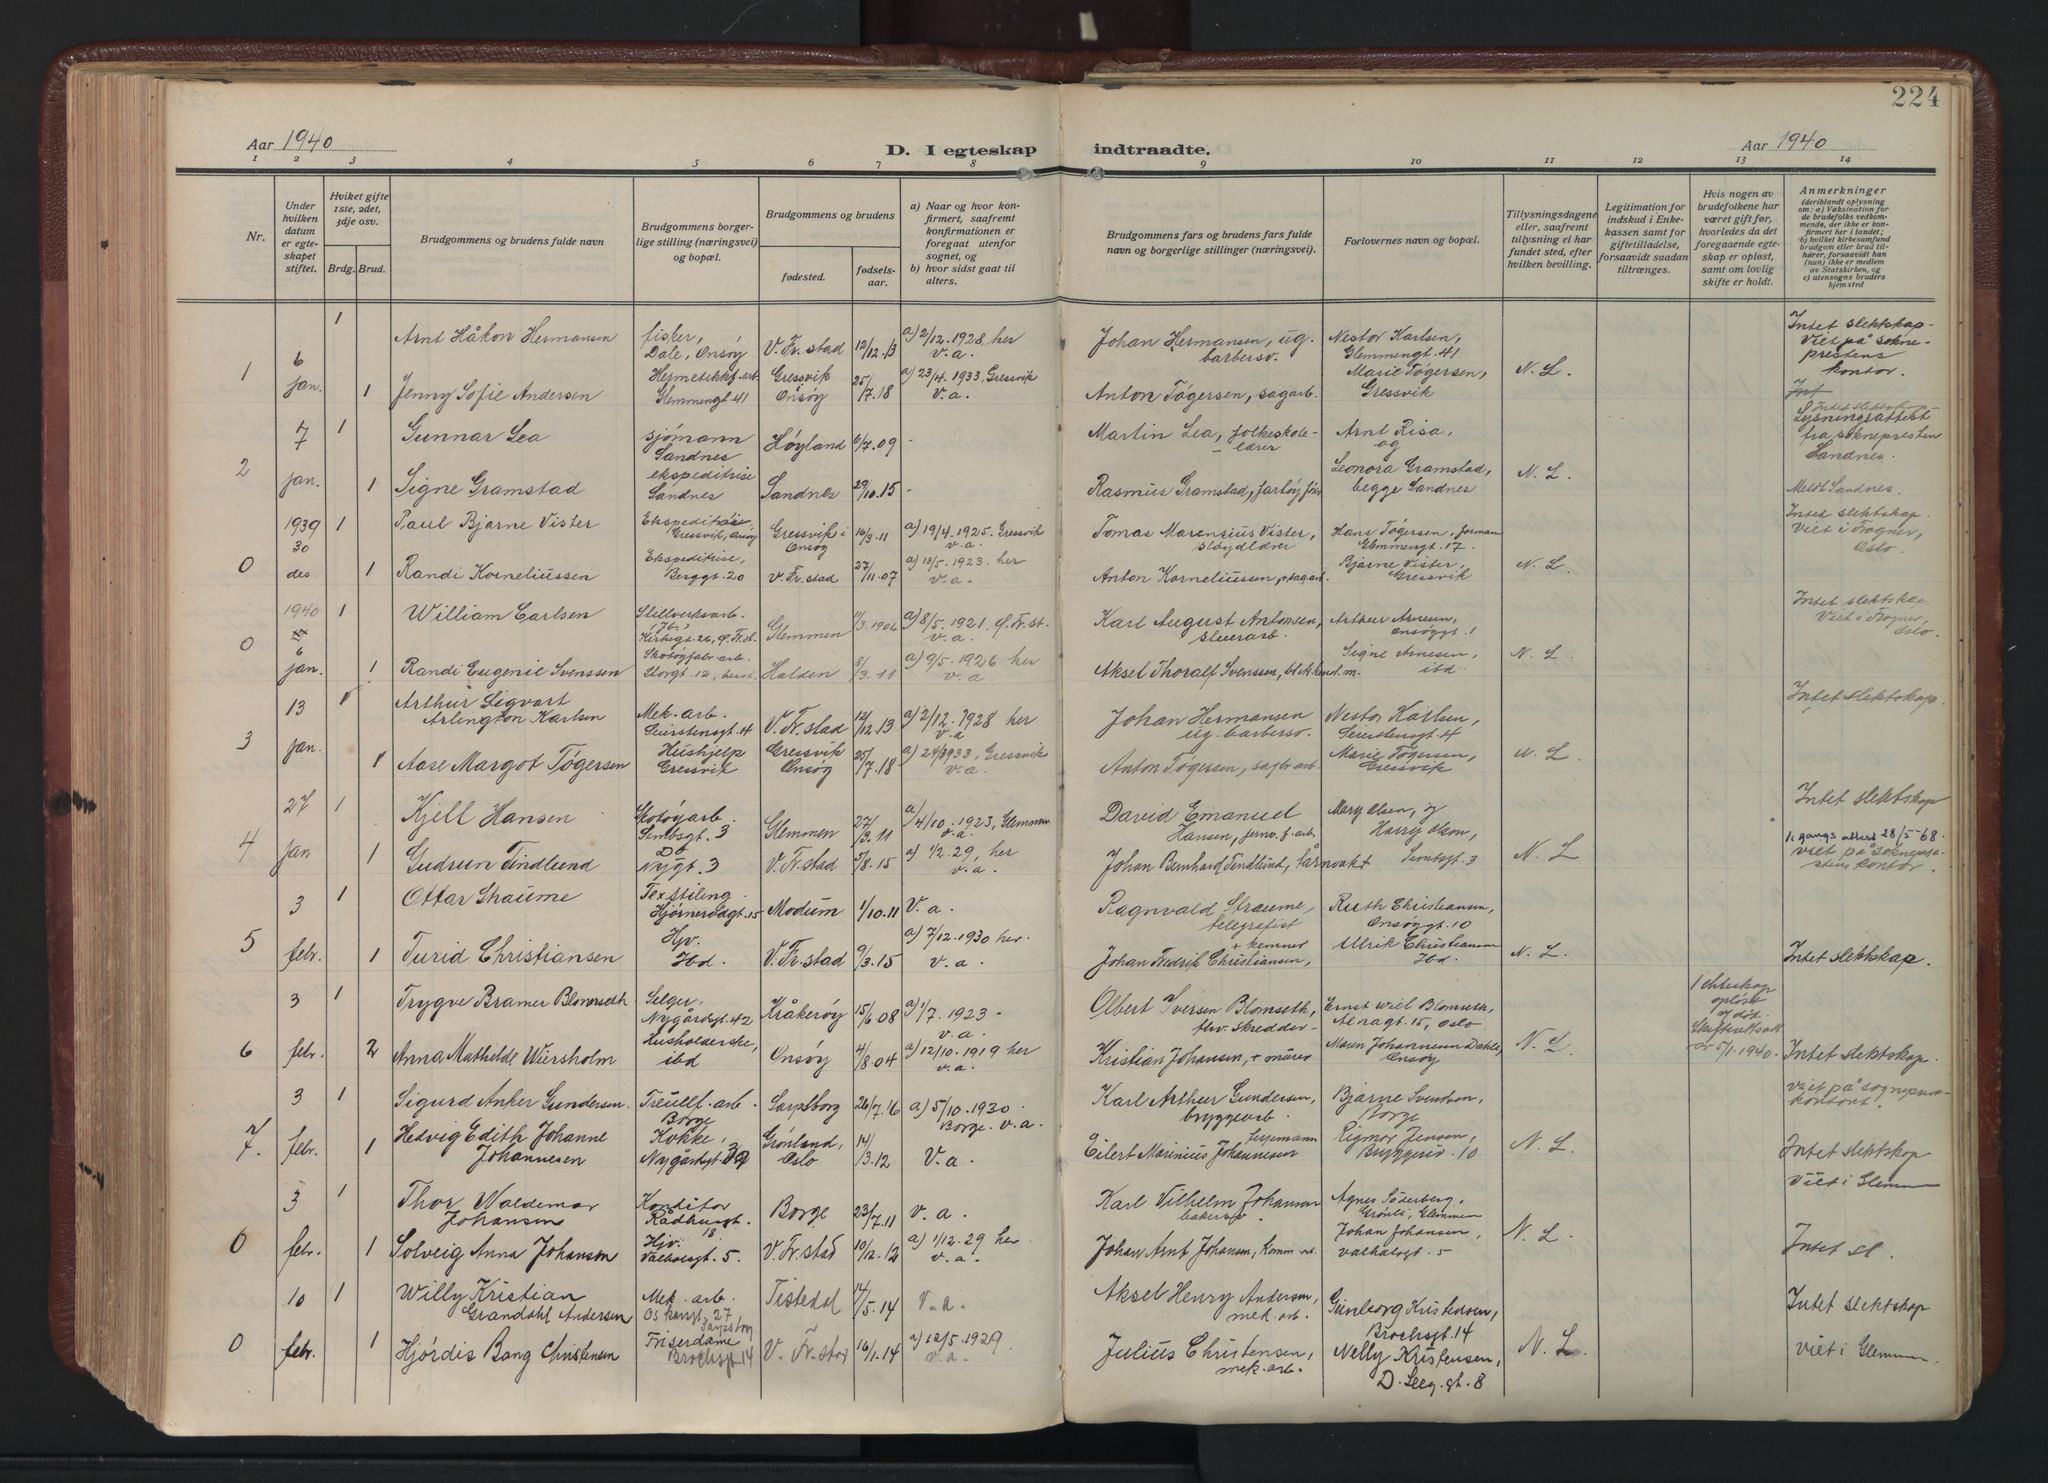 224
Aar 1940
D. I egteskap indtraadte.
Aar 1940
1 2 3 4 5 6 7 8 9 10 11 12 13 14
Nr.
Under hvilken datum er egteskapet stiftet.
Hviket gifte 1ste, 2det, 3dje osv.
Brdg. Brud.
Brudgommens og brudens fulde navn
Brudgommens borgerlige stilling (næringsvei) og bopæl.
Brudgommens og brudens
fødested.
fødselsaar.
a) Naar og hvor konfirmert, saafremt konfirmationen er foregaat utenfor sognet, og
b) hvor sidst gaat til alters.
Brudgommens fars og brudens fars fulde navn og borgerlige stillinger (næringsvei).
Forlovernes navn og bopæl.
Tillysningsdagene eller, saafremt tillysning ei har fundet sted, efter hvilken bevilling.
Legitimation for indskud i Enkekassen samt for giftetilladelse, forsaavidt saadan tiltrænges.
Hvis nogen av brudefolkene har været gift før, hvorledes da det foregaaende egteskap er opløst, samt om lovlig skifte er holdt.
Anmerkninger
(deriblandt oplysning om: a) Vaksination for de brudefolks vedkommende, der ikke er konfirmert her i landet; b) hvilket kirkesamfund brudgom eller brud tilhører, forsaavidt han (hun) ikke er medlem av Statskirken, og c) utensogns bruders hjemsted
1 6 jan. 1 Arnt Håkon Hermansen fisker, Dale, Onsøy V. Fr.stad 12/12.13 a) 2/12.1928, her v.a. Johan Hermansen, ug. barbersv. Nestor Karlsen, Glemmengt. 41 Intet slektskap. Viet på sokneprestens kontor.
1 Jenny Sofie Andersen Hermetikkf.arb. Glemmengt 41 Gressvik Onsøy 25/7.18 a) 23/4.1933, Gressvik v.a. Anton Tøgersen, sagarb. Marie Tøgersen, Gressvik N. L.
2 7 jan. 1 Gunnar Lea sjømann Sandnes Høyland 6/7.09 - Martin Lea, folkeskolelærer Arnt Risa, og Intet slektskap Lysningsattest fra soknepresten Sandnes.
1 Signe Gramstad ekspeditrise Sandnes Sandnes 29/10.15 - Rasmus Gramstad, Leonora Gramstad, begge Sandnes N. L. Meldt Sandnes.
0 1939 30 des 1 Paul Bjarne Vister Gressvik, Onsøy Gressvik i Onsøy 16/3.11 a) 19/4.1925. Gressvik v.a. Tomas Marensius Vister, sløydlærer Hans Tøgersen, forman Glemmengt. 17. Intet slektskap. Viet i Frogner, Oslo.
1 Randi Korneliussen Ekspeditrise, Berggt. 20 V. Fr.stad 27/11.07 a) 13/5.1923 her v.a. Anton Korneliussen, + sagarb. Bjarne Vister, Gressvik N. L.
0 1940 6 jan. 1 William Carlsen Stillverksarb. Glemmen 11/3.1906 a) 8/5.1921. Ø. Fr.st. v.a. Karl August Antonsen, stuerarb. Arthur Arnesen, Onsøygt. 1 Intet slektskap Viet i Frogner, Oslo.
1 Randi Eugenie Svenssen Skotøyfabr.arb. Storgt. 12, Halden 8/3.11 a) 9/5.1926 her v.a. Aksel Thoralf Svenssen, blikkensl.m. Signe Arnesen, ibd. N. L.
3 13 jan. 1 Arthur Sigvart Arlington Karlsen Mek.arb. Seierstensgt. 4 V. Fr.stad 12/12.13 a) 2/12.1928 her v.a. Johan Hermansen ug. barbersv. Nestor Karlsen, Seierstensgt. 4 Intet slektskap.
1 Aase Margot Tøgersen Hushjelp Gressvik Gressvik Onsøy 25/7.18 a) 1933, Gressvik v.a. Anton Tøgersen, Marie Tøgersen, Gressvik N. L.
4 27 jan 1 Kjell Hansen Skotøyarb. 3 Glemmen 27/3.11 a) 4/10.1923, Glemmen v.a. David Emanuel Hansen, jernv.f.arb. Mary Olsen, og Harry Olsen, Intet slektskap
1 Gudrun Tindlund Do Nygt. 3 V. Fr.stad 5/8.15 a) 1/2.29, her v.a. Johan Bernhard Tindlund, tårnvakt N. L. 1. gangs attest 28/5-68. viet på sokneprestens kontor.
5 3 febr. 1 Ottar Straume Textiling. Hjørnerødgt. 15 Modum 1/10.11 V. a. Ragnvald Straume, telegrafist Ruth Christiansen, Onsøygt. 10
1 Turid Christiansen Hjv. Ibd. V. Fr.stad 9/3.15 a) 7/12.1930 her. v.a. Johan Fredrik Christiansen, + kemner Ulrik Christiansen Ibd. N. L. Intet slektskap.
6 3 febr. 1 Trygve Bramer Blomseth Selger, Nygårdsgt. 42 Kråkerøy 15/6.08 a) 1/7.1923 - v.a. Olbert Iversen Blomseth, skredder Ernst Wiel Blomseth, Alnagt. 15, Oslo 1 ekteskap opløst v/ død. Skifteattest av 5/1.1940.
2 Anna Mathilde Wiersholm Husholderske, ibd Onsøy 4/8.04 a) 12/10.1919 her v.a. Kristian Johansen, + murer Maren Johannesen Dahle, Onsøy N. L. Intet slektskap.
7. 3 febr. 1 Sigurd Anker Gundersen. Treullf.arb. Borge Sarpsborg 26/7.16 a) 5/10.1930 Borge. v.a. Karl Arthur Gundersen, bryggearb. Bjarne Svendsen, Borge Viet på sogneprestkontort.
1 Hedvig Edith Johanne Johannesen Kokke, Nygårdsgt. Grønland, Oslo 14/3.12 V.a. Eilert Marinius Johannesen Rigmor Jensen, 10 N. L. Intet slektskap
0 3 febr. 1 Thor Waldemar Johansen Konditor Rådhusgt. 18 Borge 23/7.11 v.a. Karl Vilhelm Johansen Agnes Söderberg, Grønli, Glemmen Viet i Glemm
1 Solveig Anna Johansen Hjv. Valhalsgt. 5. V. Fr.stad 10/12.12 a) 1/12.29 her v.a. Johan Arnt Johansen, Komm.arb. Johan Johansen, Valhalsgt. 5 N. L. Intet sl.
0 10 febr. 1 Willy Kristian Grandahl Andersen Mek. arb. Oskarsgt. 27 Sarpsborg Tistedal 14/5.14 V.a. Aksel Henry Andersen, mek.arb. Gunborg Kristensen, Brochsgt. 14 Intet slektskap
1 Hjørdis Bang Christensen Friserdame Brochsgt. 14 V. Fr.stad 16/1.14 a) 12/5.1929 v.a. Julius Christensen, mek.arb. Nelly Kristensen, 8 N. L. Viet i Glemmen.